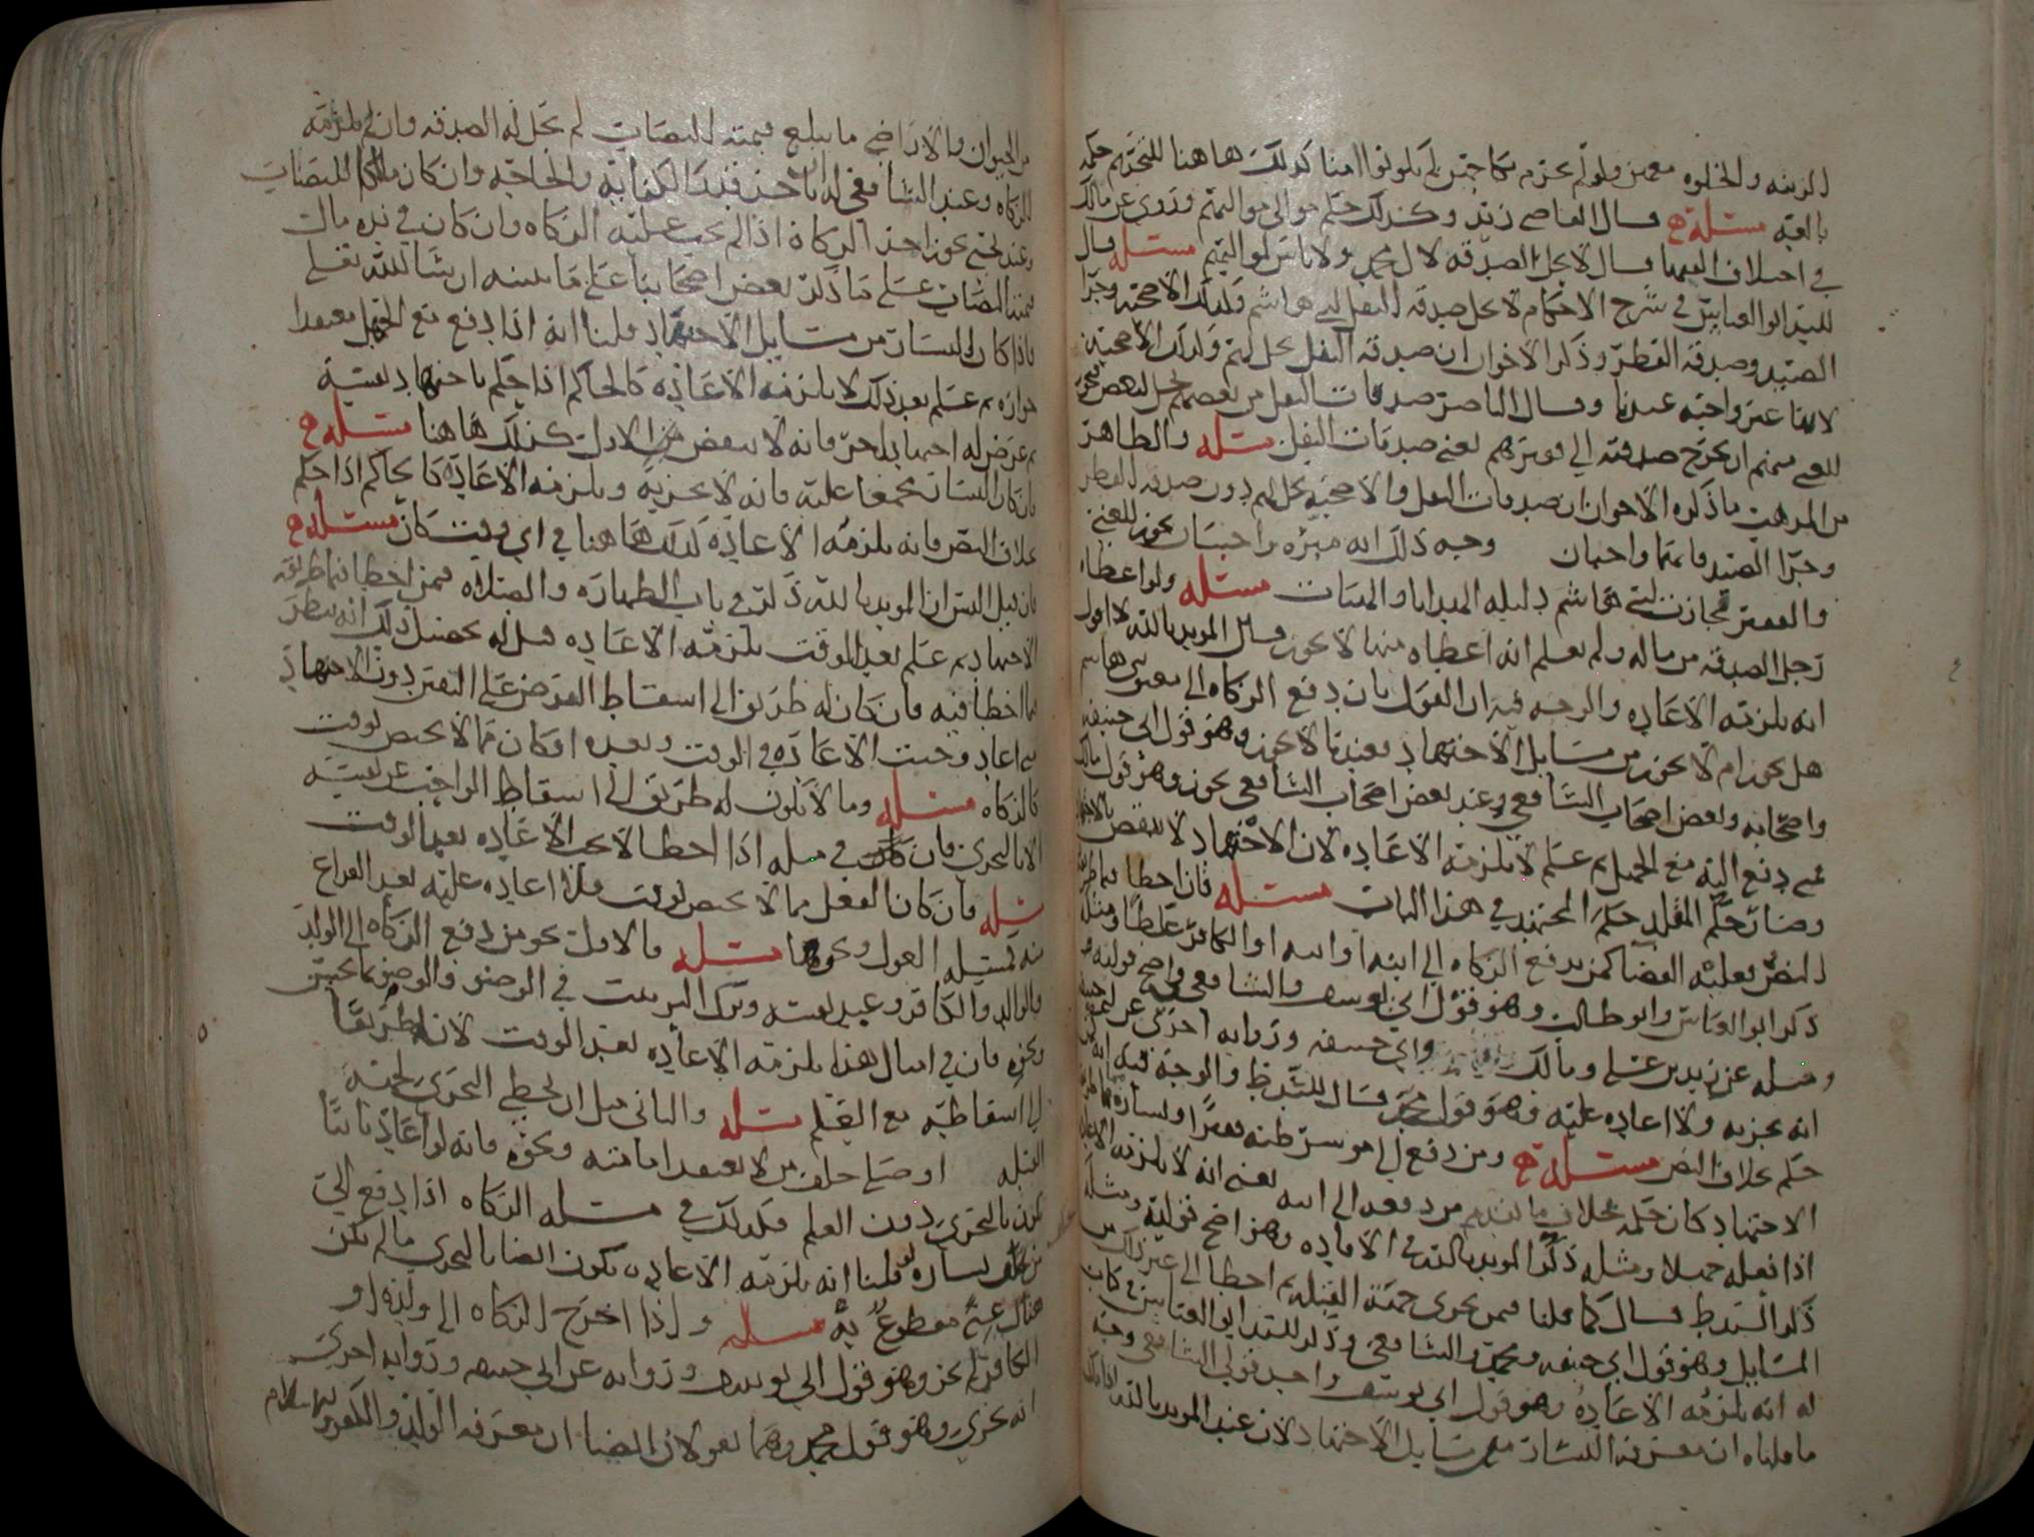 الزينه والخلوه معهن ولو لم يحرم نكاحهن لم يكونوا امنا كذلك هاهنا للتحريم حكمه
بالعقد مسئله ح قال القاضي زيد وكذلك حكم موالي مواليهم وروي عن مالك
في اختلاف الفقها قال لا تحل الصدقه لال محمد ولا باس لمواليهم مسئله قال
السيد ابو العباس في شرح الاحكام لا تحل صدقه النفل لبني هاشم وكذلك الاضحيه وجزا
الصيد وصدقه الفطر وذكر الاخوان ان صدقه النفل تحل لهم وكذلك الاضحيه
لانها غير واجبه عندنا وقال الناصر صدقات النفل من بعضهم تحل لبعض
للغني منهم ان يخرج صدقته الى فقيرهم يعني صدقات النفل مسئله والظاهر
من المذهب ما ذكره الاخوان ان صدقات النفل والاضحيه تحل لهم دون صدقه الفطر
وجزا الصيد فانهما واجبان وجه ذلك انه مبره واحسان تجوز للغني
والفقير فجازت لبني هاشم دليله الهدايا والهبات مسئله ولو اعطاه
رجل الصدقه من ماله ولم يعلم انه اعطاه منها لا يجوز قال المويد بالله لا اقول
انه يلزمه الاعاده والوجه فيه ان القول بان دفع الزكاه الى بني هاشم
هل يجوز ام لا يجوز من مسايل الاجتهاد فعندنا لا يجوز وهو قول ابي حنيفه
واصحابه وبعض اصحاب الشافعي وعند بعض اصحاب الشافعي يجوز وهو قول مالك
فمتى دفع اليه مع الجهل ثم علم لا يلزمه الاعاده لان الاجتهاد لا ينقض بالاجتهاد
وصار حكم المقلد حكم المجتهد في هذا الباب مسئله فان اخطا فيما طريقه
النص فعليه القضا كمن يدفع الزكاه الى ابنه او ابيه او الكافر غلطا ومثله
ذكر ابو العباس وابو طالب وهو قول ابي يوسف والشافعي في واضح قوليه
ومثله عن زيد بن علي ومالك وابي حنيفه وروايه اخرى عن ابي حنيفه
انه يجزيه ولا اعاده عليه وهو قول محمد قال السيد ط والوجه فيه انه
حكم بخلاف النص مسئله ح ومن دفع الى موسر ظنه فقيرا
الاجتهاد كان حكمه بخلاف ما تقدم من دفعه الى ابيه يعني انه لا يلزمه الاعاده
اذا فعله جهلا ومثله ذكر المويد بالله في الافاده وهو واضح قوليه ومثله
ذكر السيد ط قال كما قلنا فيمن تحرى جهه القبله ثم اخطا الى غير ذلك
المسايل وهو قول ابي حنيفه ومحمد والشافعي وذكر السيد ابو العباس في كتاب
له انه يلزمه الاعاده وهو قول ابي يوسف واحد قولي الشافعي وجه
ما قلناه ان معرفه اليسار من مسايل الاجتهاد لان عند المويد بالله
من الحيوان والاراضي ما يبلغ قيمته النصاب لم تحل له الصدقه وان لم يلزمه
الزكاه وعند الشافعي له ان ياخذ قدر الكفايه والحاجه وان كان مالكا للنصاب
وعند يجوز اخذ الزكاه اذا لم تجب عليه الزكاه وان كان في يده مال
قيمته النصاب على ما ذكر بعض اصحابنا على ما نبينه ان شا الله تعالى
فاذا كان اليسار من مسايل الاجتهاد قلنا انه اذا دفع مع الجهل معتقدا
جوازه ثم علم بعد ذلك لا يلزمه الاعاده كالحاكم اذا حكم باجتهاد نفسه
ثم عرض له اجتهاد اخر فانه لا ينقض الاول كذلك هاهنا مسئله ح
فان كان اليسار مجمعا عليه فانه لا يجزيه ويلزمه الاعاده كالحاكم اذا حكم
بخلاف النص فانه يلزمه الاعاده كذلك هاهنا في اي وقت كان مسئله ح
فان قيل اليس ان المويد بالله ذكر في باب الطهاره والصلاه فيمن اخطا فيما طريقه
الاجتهاد ثم علم بعد الوقت يلزمه الاعاده قيل له تحصيل ذلك انه ينظر
فيما اخطا فيه فان كان له طريق الى اسقاط الفرض على اليقين دون الاجتهاد
متى اعاد وجبت الاعاده في الوقت وبعده او كان مما لا يختص لوقت
كالزكاه مسئله وما لا يكون له طريق الى اسقاط الواجب عن نفسه
الا بالتحري فان كان في مثله اذا اخطا لا تجب الاعاده بعد الوقت
مسئله فان كان الفعل مما لا يختص لوقت فلا اعاده عليه بعد الفراغ
منه كمسئله العول ونحوها مسئله فالاول نحو من دفع الزكاه الى الولد
والوالد والكافر وعبد نفسه وترك الترتيب في الوضو والوضو بما نجس
ونحوه فان في امثال هذا يلزمه الاعاده بعد الوقت لان له طريقا
الى اسقاطه مع العلم مسئله والثاني مثل ان يخطي التحري لجهه
القبله او صلى خلف من لا يعتقد امامته ونحوه فانه لو اعاد ثانيا
يكون بالتحري دون العلم فكذلك في مسئله الزكاه اذا دفع الى
من يساره قلنا انه يلزمه الاعاده يكون ايضا بالتحري ما لم يكن
هناك غني مقطوع به مسئله واذا اخرج الزكاه الى ولده او
الكافر لم يجز وهو قول ابي يوسف وروايه عن ابي حنيفه وروايه اخرى
انه يجزي وهو قول محمد وهما يقولان ايضا ان معرفه الولد والكفر